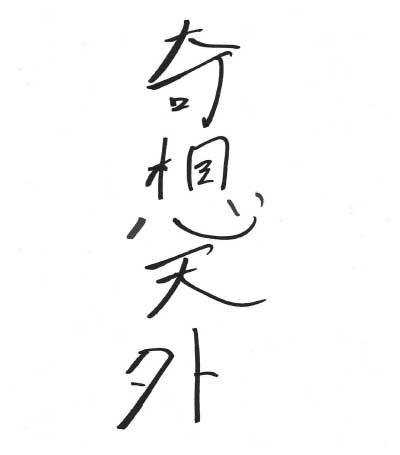 奇想天外